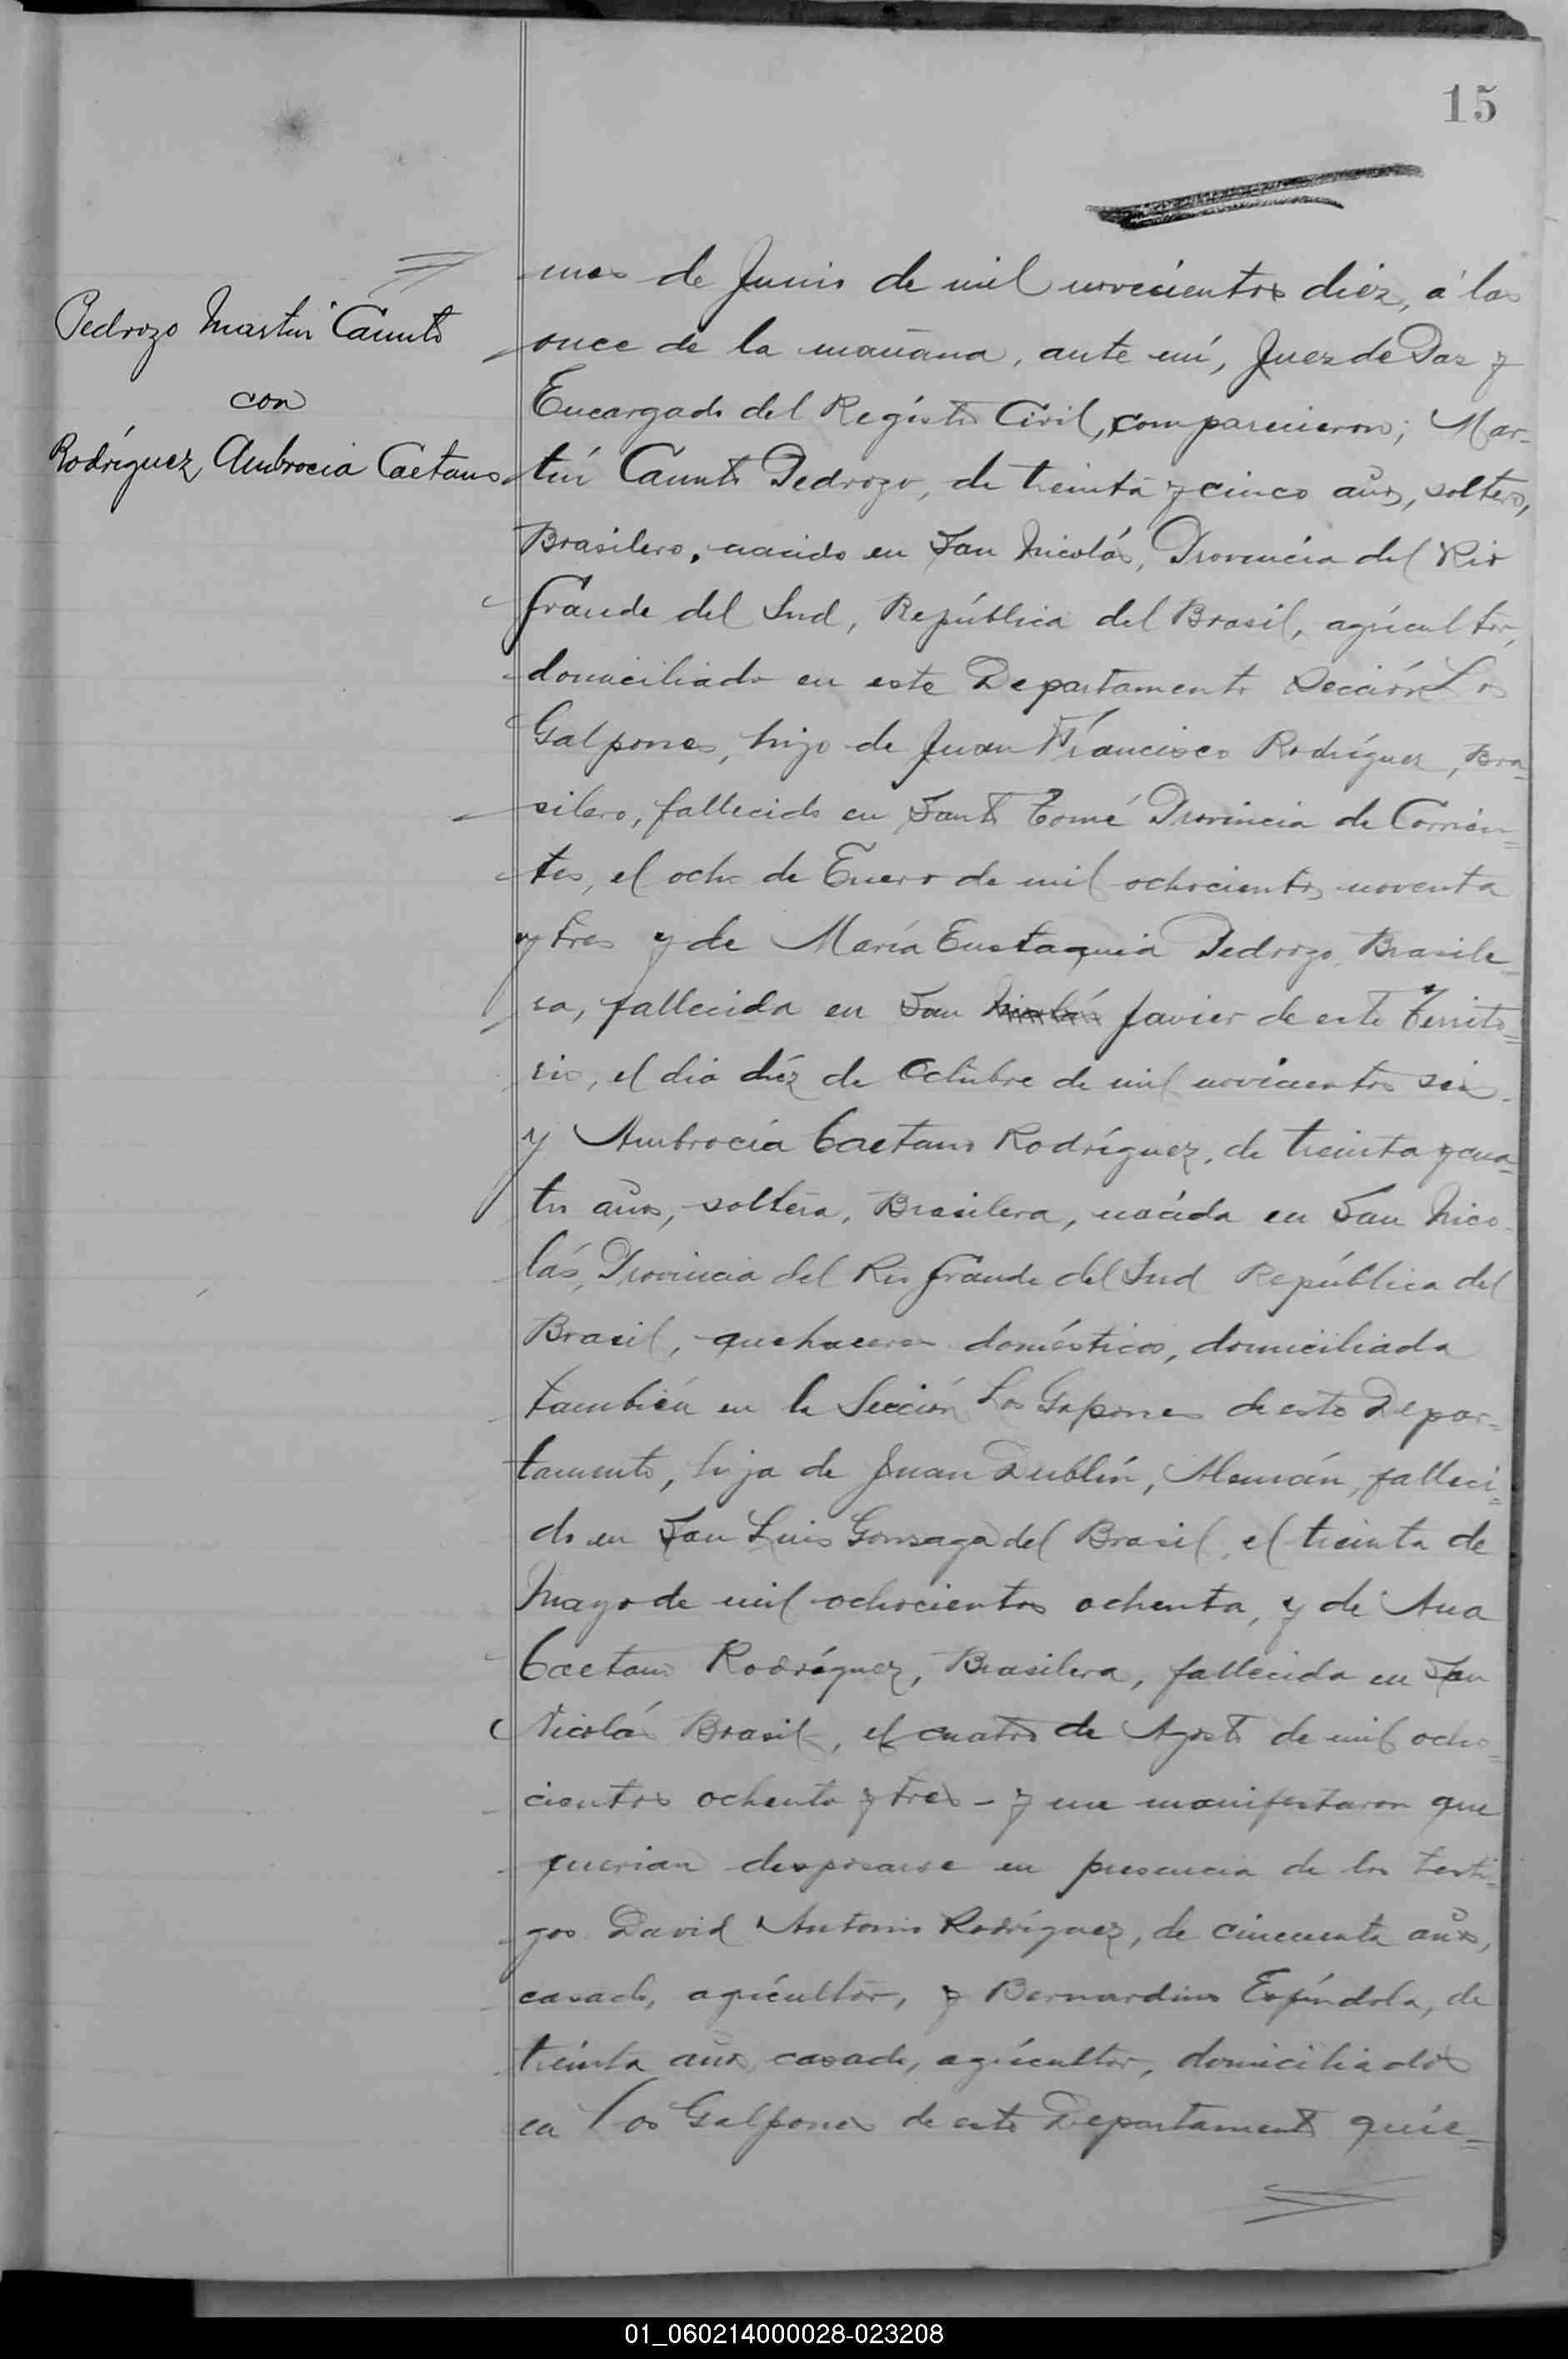 15
Pedrozo Martin Canuto
con
Rodríguez Ambrocia Caetano
mes de Junio de mil novecientos diez, á las
once de la mañana, ante mí, Juez de Paz y
Encargado del Registro Civil, comparecieron; Mar-
tín Canuto Pedrozo, de treinta y cinco años, soltero,
Brasilero, nacido en San Nicolás, Provincia del Rio
Grande del Sud, República del Brasil, agricultor,
domiciliado en este Departamento Sección Los
Galpones, hijo de Juan Francisco Rodríguez, Bra=
silero, fallecido en Santo Tomé Provincia de Corrien=
tes, el ocho de Enero de mil ochocientos noventa
y tres y de María Eustaquia Pedrozo, Brasile=
ra, fallecida en San Nicolás Javier de este Territo=
rio, el dia diéz de Octubre de mil novecientos seis-
y Ambrocia Caetano Rodríguez, de treinta y cua=
tro años, soltera, Brasilera, nacida en San Nico-
lás, Provincia del Rio Grande del Sud República del
Brasil, quehaceres domésticos, domiciliada
también en la Sección Los Gapones de este Depar=
tamento, hija de Juan Dublín, Alemán, falleci=
do en San Luis Gonsaga del Brasil, el treinta de
Mayo de mil ochocientos ochenta, y de Ana
Caetano Rodríguez, Brasilera, fallecida en San
Nicolás Brasil, el cuatro de Agosto de mil ocho=
cientos ochenta y tres - y me manifestaron que
querian desposarse en presencia de los testi=
gos David Antonio Rodríguez, de cincuenta años,
casado, agricultor, y Bernardino Espíndola, de
treinta años, casado, agricultor, domiciliados
en Los Galpones de este Departamento quie=
01_060214000028-023208